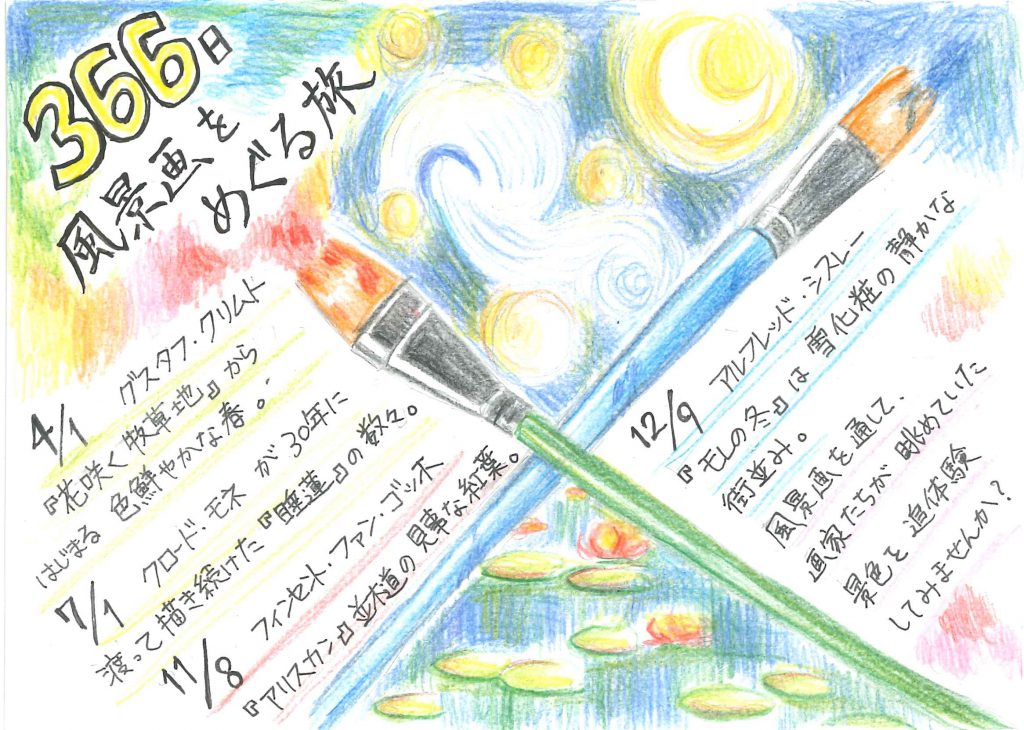 366日
風景画を
めぐる旅
4/1 グスタフ・クリムト
『花咲く牧草地』から
はじまる 色鮮やかな春。
7/1 クロード・モネ が 30年に
渡って描き続けた『睡蓮』の数々。
11/8 フィンセント・ファン・ゴッホ
『アリスカン』並木道の見事な紅葉。
12/9 アルフレッド・シスレー
『モレの冬』は 雪化粧の 静かな
街並み。
風景画を通して、
画家たちが 眺めていた
景色を 追体験
してみませんか?